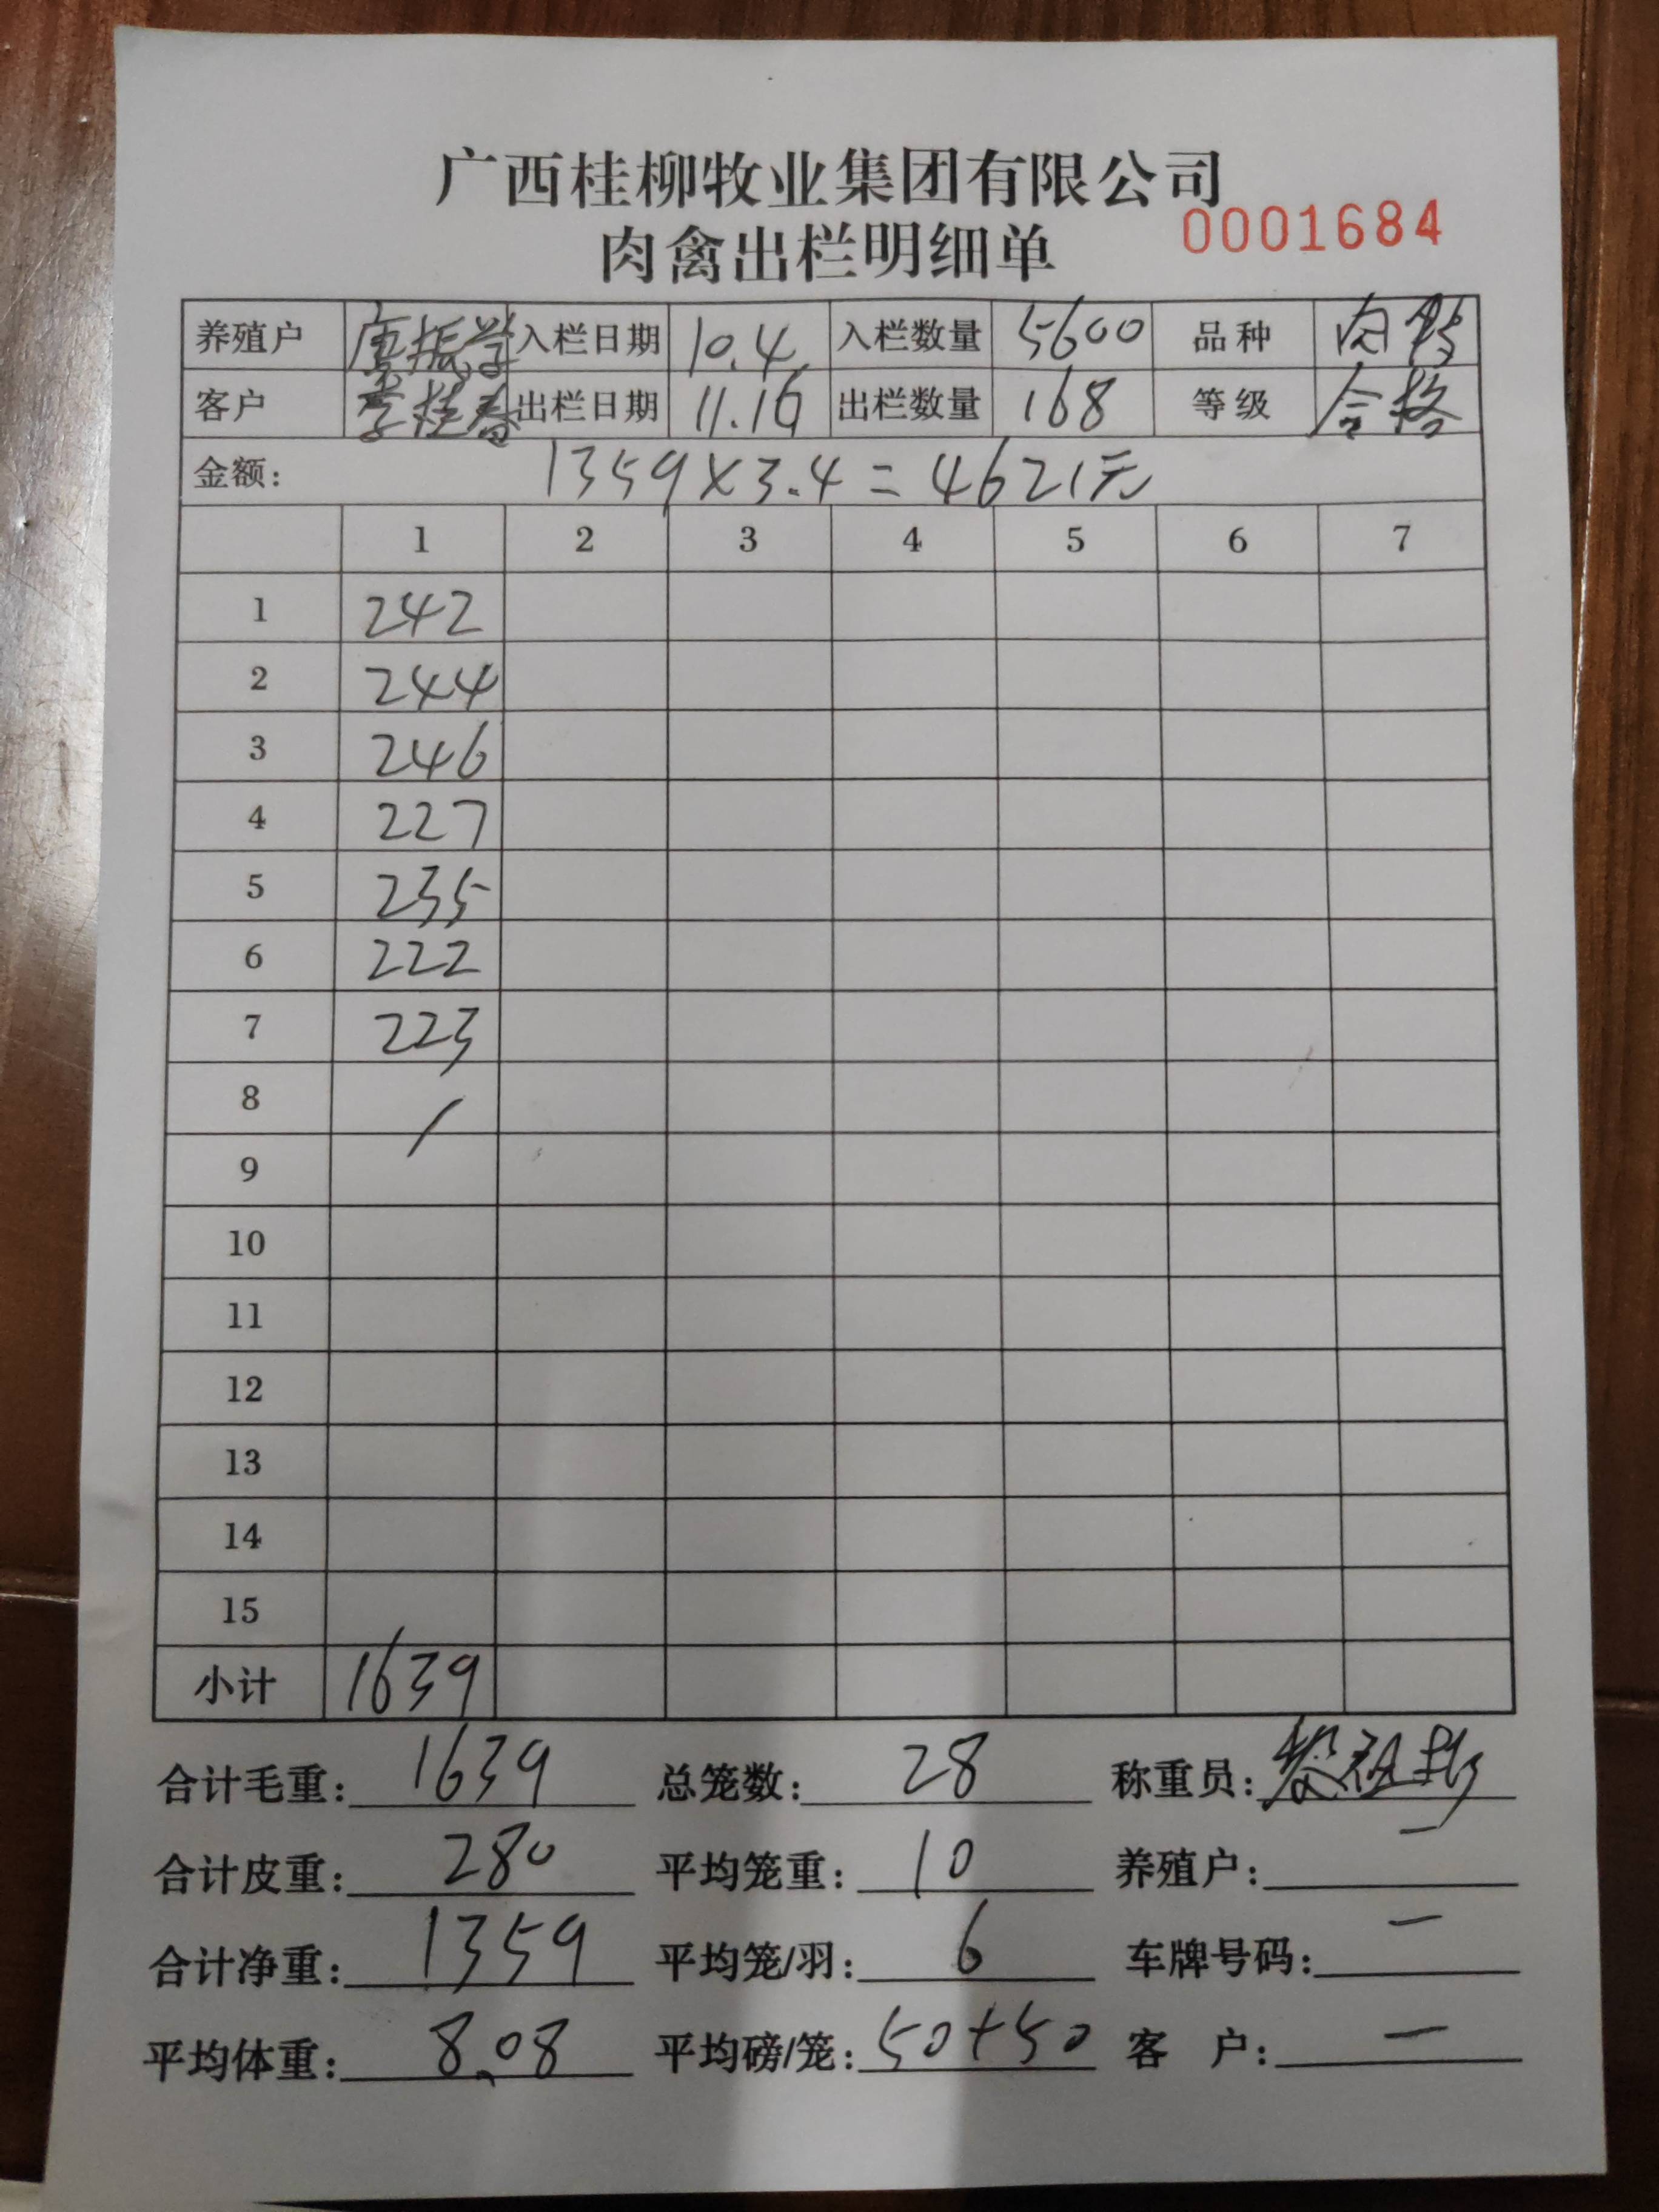 广西桂柳牧业集团有限公司
肉禽出栏明细单 0001684
养殖户 唐振学 入栏日期 10.4 入栏数量 5600 品种 肉鸭
客户 李桂春 出栏日期 11.16 出栏数量 168 等级 合格
金额: 1359×3.4=4621元
1 2 3 4 5 6 7
1 242
2 244
3 246
4 227
5 235
6 222
7 223
8 /
9
10
11
12
13
14
15
小计 1639
合计毛重: 1639 总笼数: 28 称重员:
合计皮重: 280 平均笼重: 10 养殖户: —
合计净重: 1359 平均笼/羽: 6 车牌号码: —
平均体重: 8.08 平均磅/笼: 50+50 客 户: —